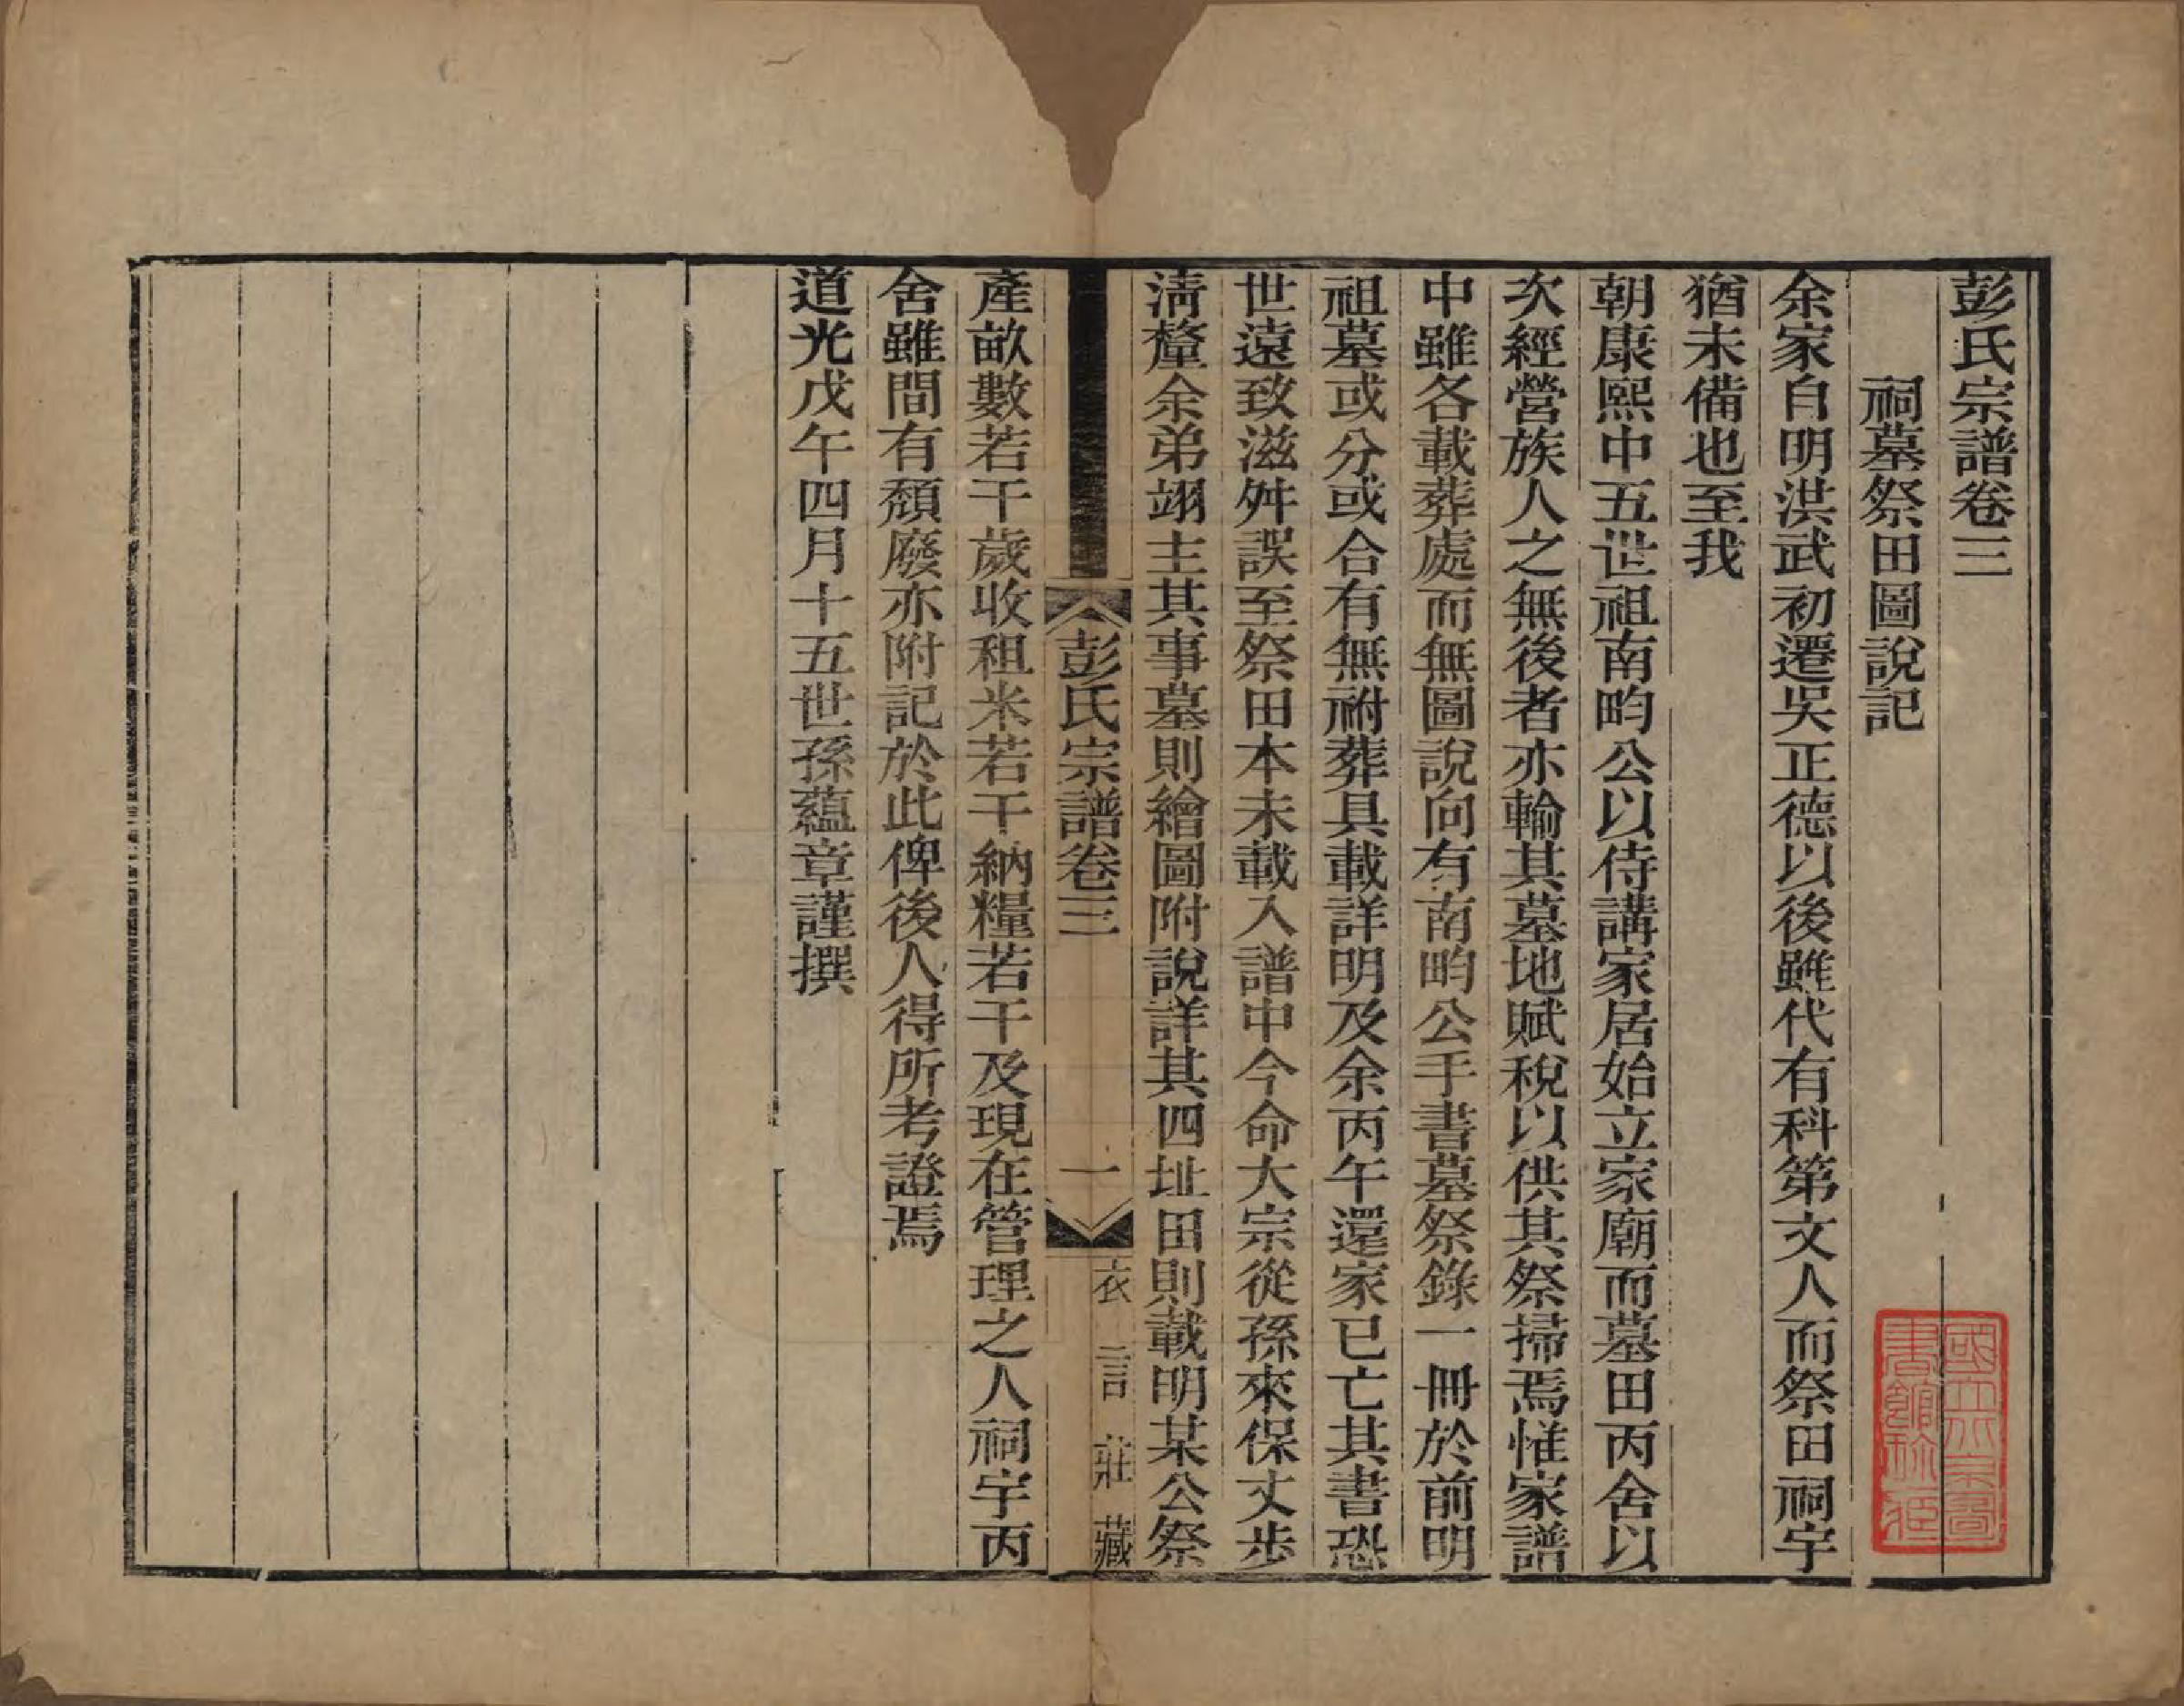 彭氏宗譜卷三
祠墓祭田圖說記
余家自明洪武初遷吳正德以後雖代有科第文人而祭田祠宇
猶未備也至我
朝康熙中五世祖南畇公以侍講家居始立家廟而墓田丙舍以
次經營族人之無後者亦輸其墓地賦稅以供其祭掃焉惟家譜
中雖各載葬處而無圖說向有南畇公手書墓祭錄一冊於前明
祖墓或分或合有無祔葬具載詳明及余丙午還家已亡其書恐
世遠致滋舛誤至祭田本未載入譜中今命大宗從孫來保丈步
淸釐余弟翊主其事墓則繪圖附說詳其四址田則載明某公祭
彭氏宗譜卷三
一
衣言莊藏
產畝數若干歲收租米若干納糧若干及現在管理之人祠宇丙
舍雖間有頹廢亦附記於此俾後人得所考證焉
道光戊午四月十五世孫蘊章謹撰
國立北平圖
書館珍藏